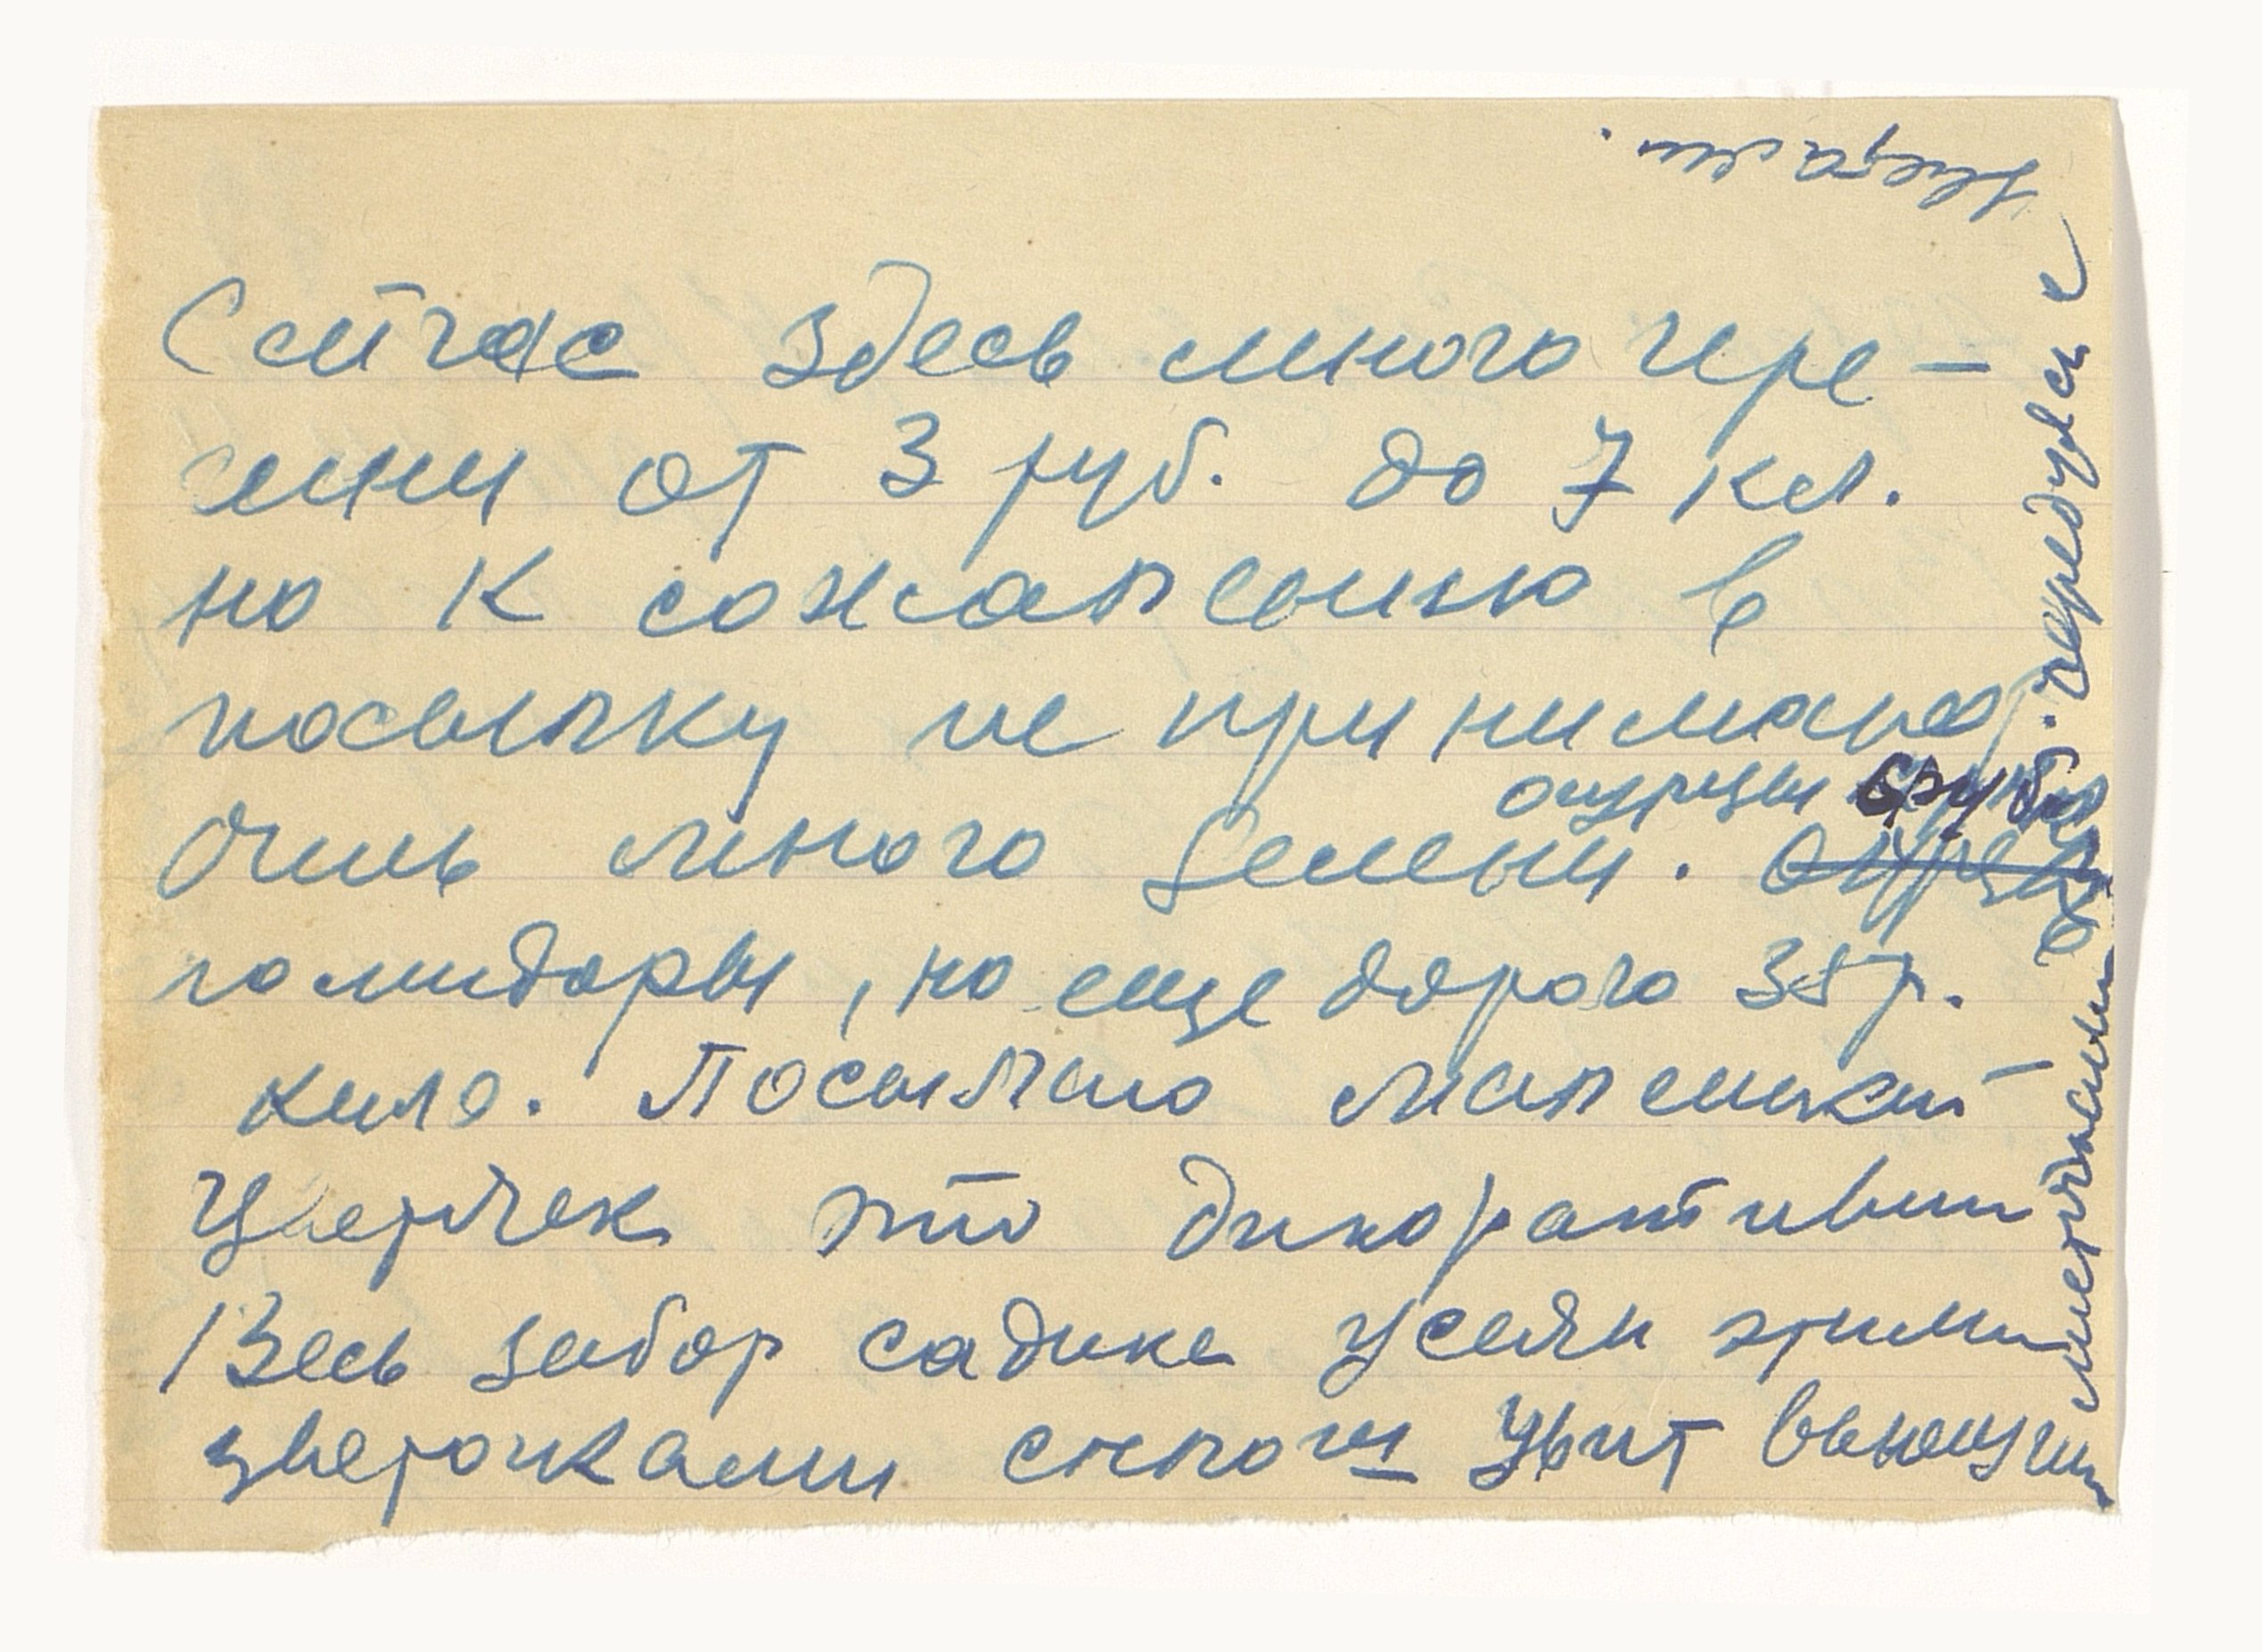 Сейчас здесь много чере-
шни от 3 руб. до 7 кил.
но к сожалению в
посылку не принимают
огурцы 6 руб.
Очень много зелени.
помидоры, но еще дорого 35 р.
кило. Посылаю маленький
цветочек это дикоративн
Весь забор садика усеян этими
цветочками сплош увит вьющим
листочками
чередуясь с
цветами.